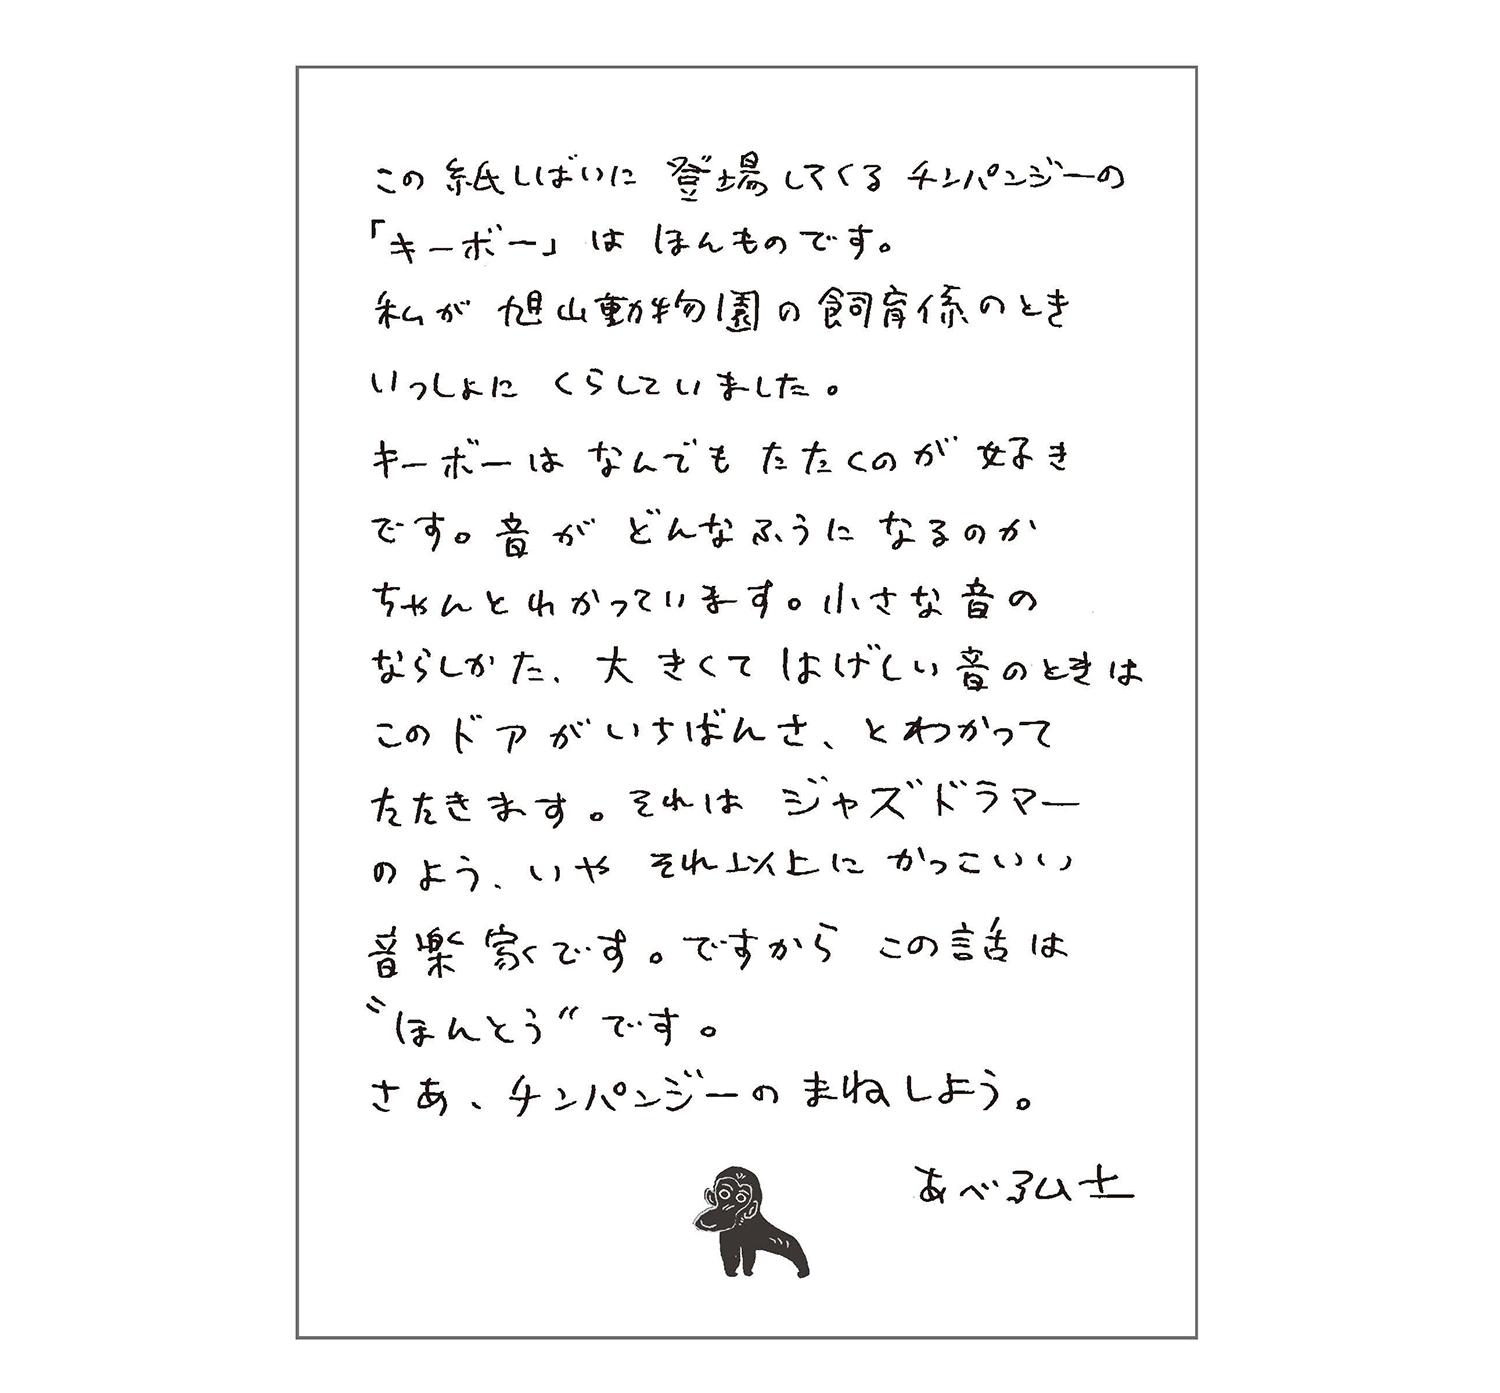 この紙しばいに 登場してくる チンパンジーの
「キーボー」は ほんものです。
私が 旭山動物園の飼育係のとき
いっしょに くらしていました。
キーボーは なんでも たたくのが 好き
です。音が どんなふうに なるのか
ちゃんとわかっています。小さな音の
ならしかた、大きくて はげしい音のときは
このドアがいちばんさ、とわかって
たたきます。それは ジャズドラマー
のよう、いや それ以上に かっこいい
音楽家です。ですから この話は
〝ほんとう〟です。
さあ、チンパンジーの まねしよう。
あべ弘士